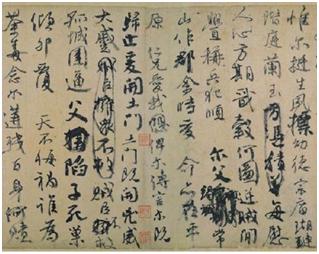 惟尔挺生夙標幼德宗廟瑚璉
階庭蘭玉每慰
人心方期戩穀何圖逆賊閒
釁稱兵犯順尔父竭誠常
山作郡余時受命亦在平
原仁兄愛我俾尔傳言尔既
歸止爰開土門土門既開凶威
大蹙賊臣不救
孤城圍逼父陷子死巢
傾卵覆天不悔禍誰為
荼毒念尔遘殘百身何贖